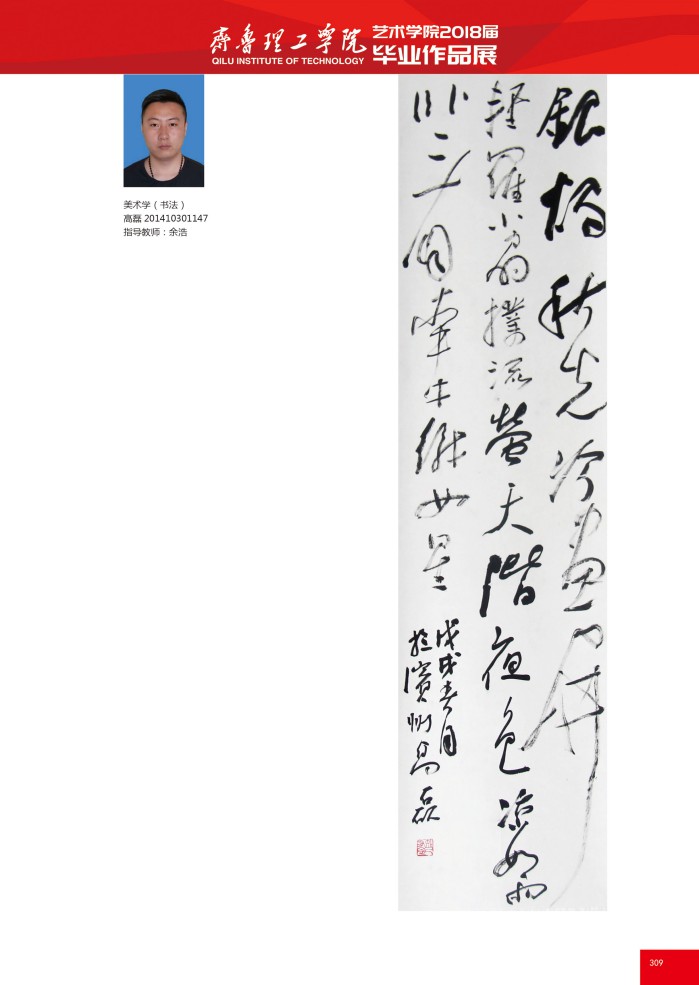 齊魯理工學院
QILU INSTITUTE OF TECHNOLOGY
艺术学院2018届
毕业作品展
美术学（书法）
高磊 201410301147
指导教师：余浩
銀燭秋光冷畫屏
輕羅小扇撲流螢天階夜色凉如雨
卧牽牛織女星
戊戌春月
於濱州高磊
309